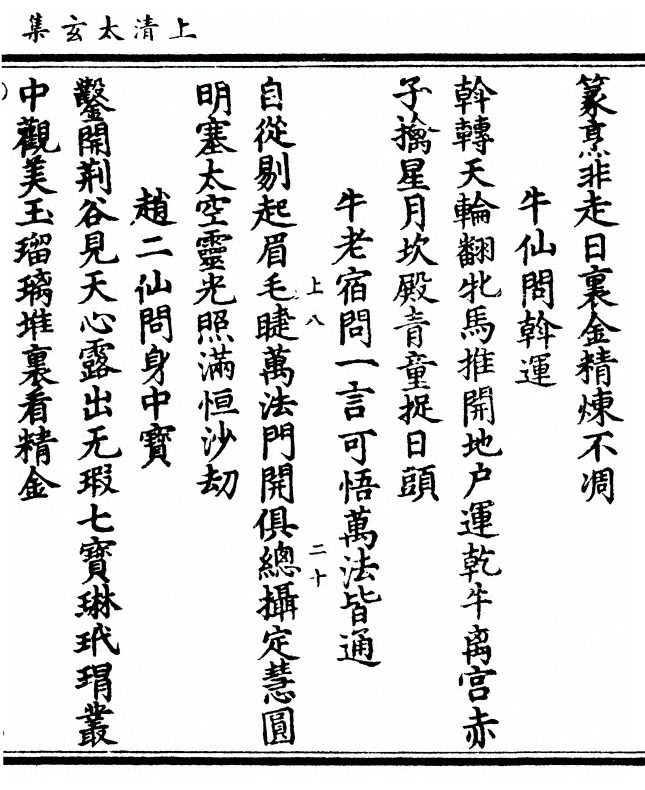 上清太玄集
篆烹非走日裏金精煉不凋
牛仙問斡運
斡轉天輪翻牝馬推開地户運乾牛离宫赤
子擒星月坎殿青童捉日頭
牛老宿問一言可悟萬法皆通
上八
二十
自從剔起眉毛睫萬法門開俱總攝定慧圓
明塞太空靈光照滿恒沙劫
趙二仙問身中寶
鑿開荆谷見天心露出无瑕七寶琳玳瑁叢
中觀美玉瑠璃堆裏看精金